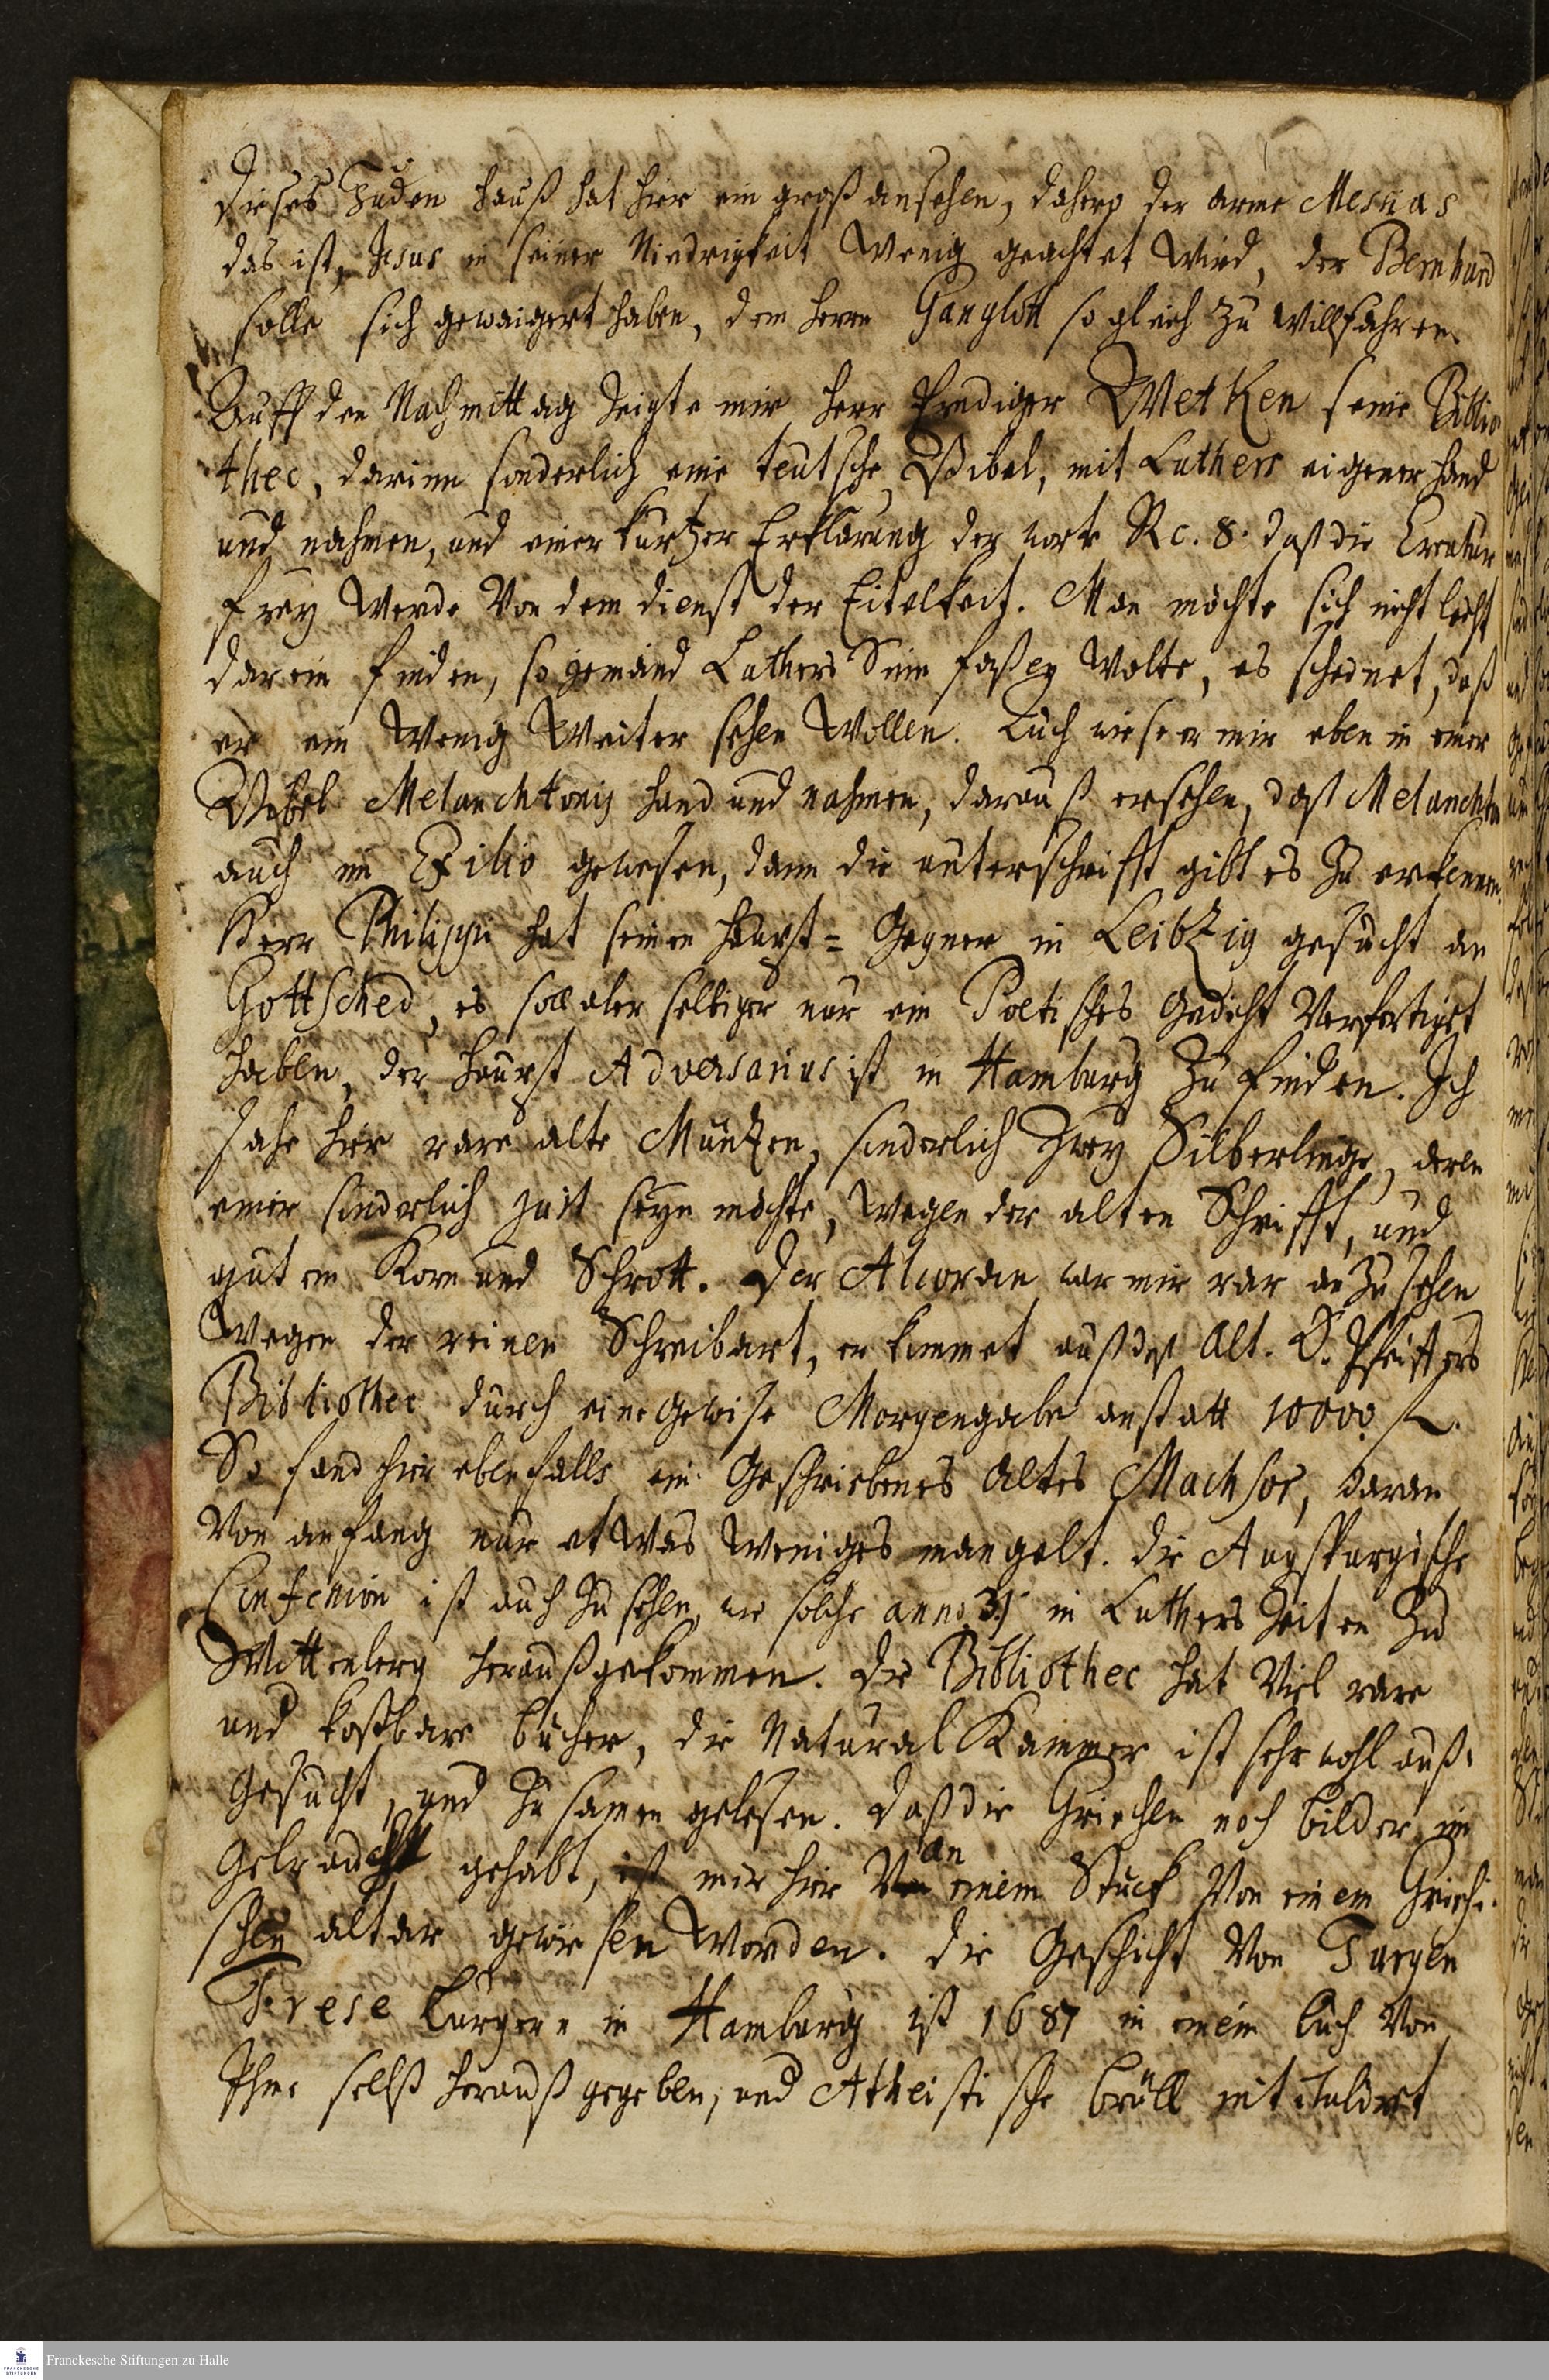 Dieses Juden Hauß hat hier ein groß ansehen, dahero der arme Messias
das ist, Jesus in seiner Niedrigkeit wenig geachtet wird, der Bernhard
solle sich gewaigert haben, dem Herrn Ganglott so gleich zu willfahren.
Auff den Nachmittag zeigte mir Herr Prediger Wetken seine Biblio
thec, darinn sonderlich eine teutsche Bibel, mit Luthers eigener Hand
und nahmen, und einer kurtzer Erklärung der wort R c. 8. daß die Creatur
frey werde von dem dienst der Eitelkeit. Man möchte sich nicht leicht
darein finden, so jemand Luthers Sinn faßen wolte, es scheinet, daß
er ein wenig weiter sehen wollen. Auch wiese er mir eben in einer
Bibel Melanchtonis Hand und nahmen, darauß ersehen, daß Melanchton
auch im Exilio gewesen, dann die unterschrifft gibt es zu erkennen.
Herr Philippi hat seinen Haupt= Gegner in Leibzig gesucht an
Gottsched, es soll aber selbiger nur ein Poetisches Gedicht verfertiget
haben, der Haupt Adversarius ist in Hamburg zu finden. Ich
sahe hier rare alte Müntzen, sonderlich zwey Silberlinge, deren
einer sonderlich just seyn möchte, wegen der alten Schrifft, und
gutem Korn und Schrott. Der Alcoran war mir rar anzusehen
wegen der reinen Schreibart, er kommet auß deß Alt. D. Pfeiffers
Bibliothec durch eine gewise Morgengabe anstatt 10000 fl.
So fand hier ebenfalls ein Geschriebenes altes Machsor, daran
von anfang nur etwas weniges mangelt. Die Augspurgische
Confession ist auch zu sehen, wie solche anno 31 in Luthers Zeiten zu
Wittenberg heraußgekommen. Die Bibliothec hat viel rare
und kostbare bücher, die Natural Kammer ist sehr wohl auß-
gesucht, und zusamen gelesen. Daß die Griechen noch bilder im
Gebraucht gehabt, ist mir hier an einem Stuck von einem Griechi-
schen altar gewiesen worden. Die Geschicht von Jurgen
Frese burgern in Hamburg ist 1687 in einem buch von
Ihme selbst herauß gegeben, und Atheistische brüll intituliret
Franckesche Stiftungen zu Halle